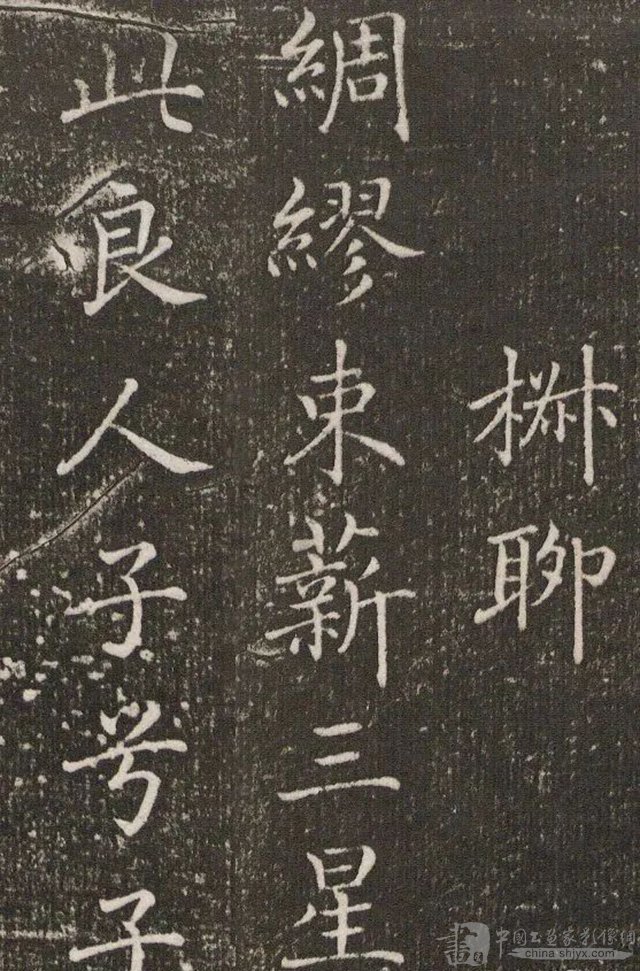 椒聊
綢繆束薪三星
此良人子兮子
中国书画家影像网
china.shjyx.com